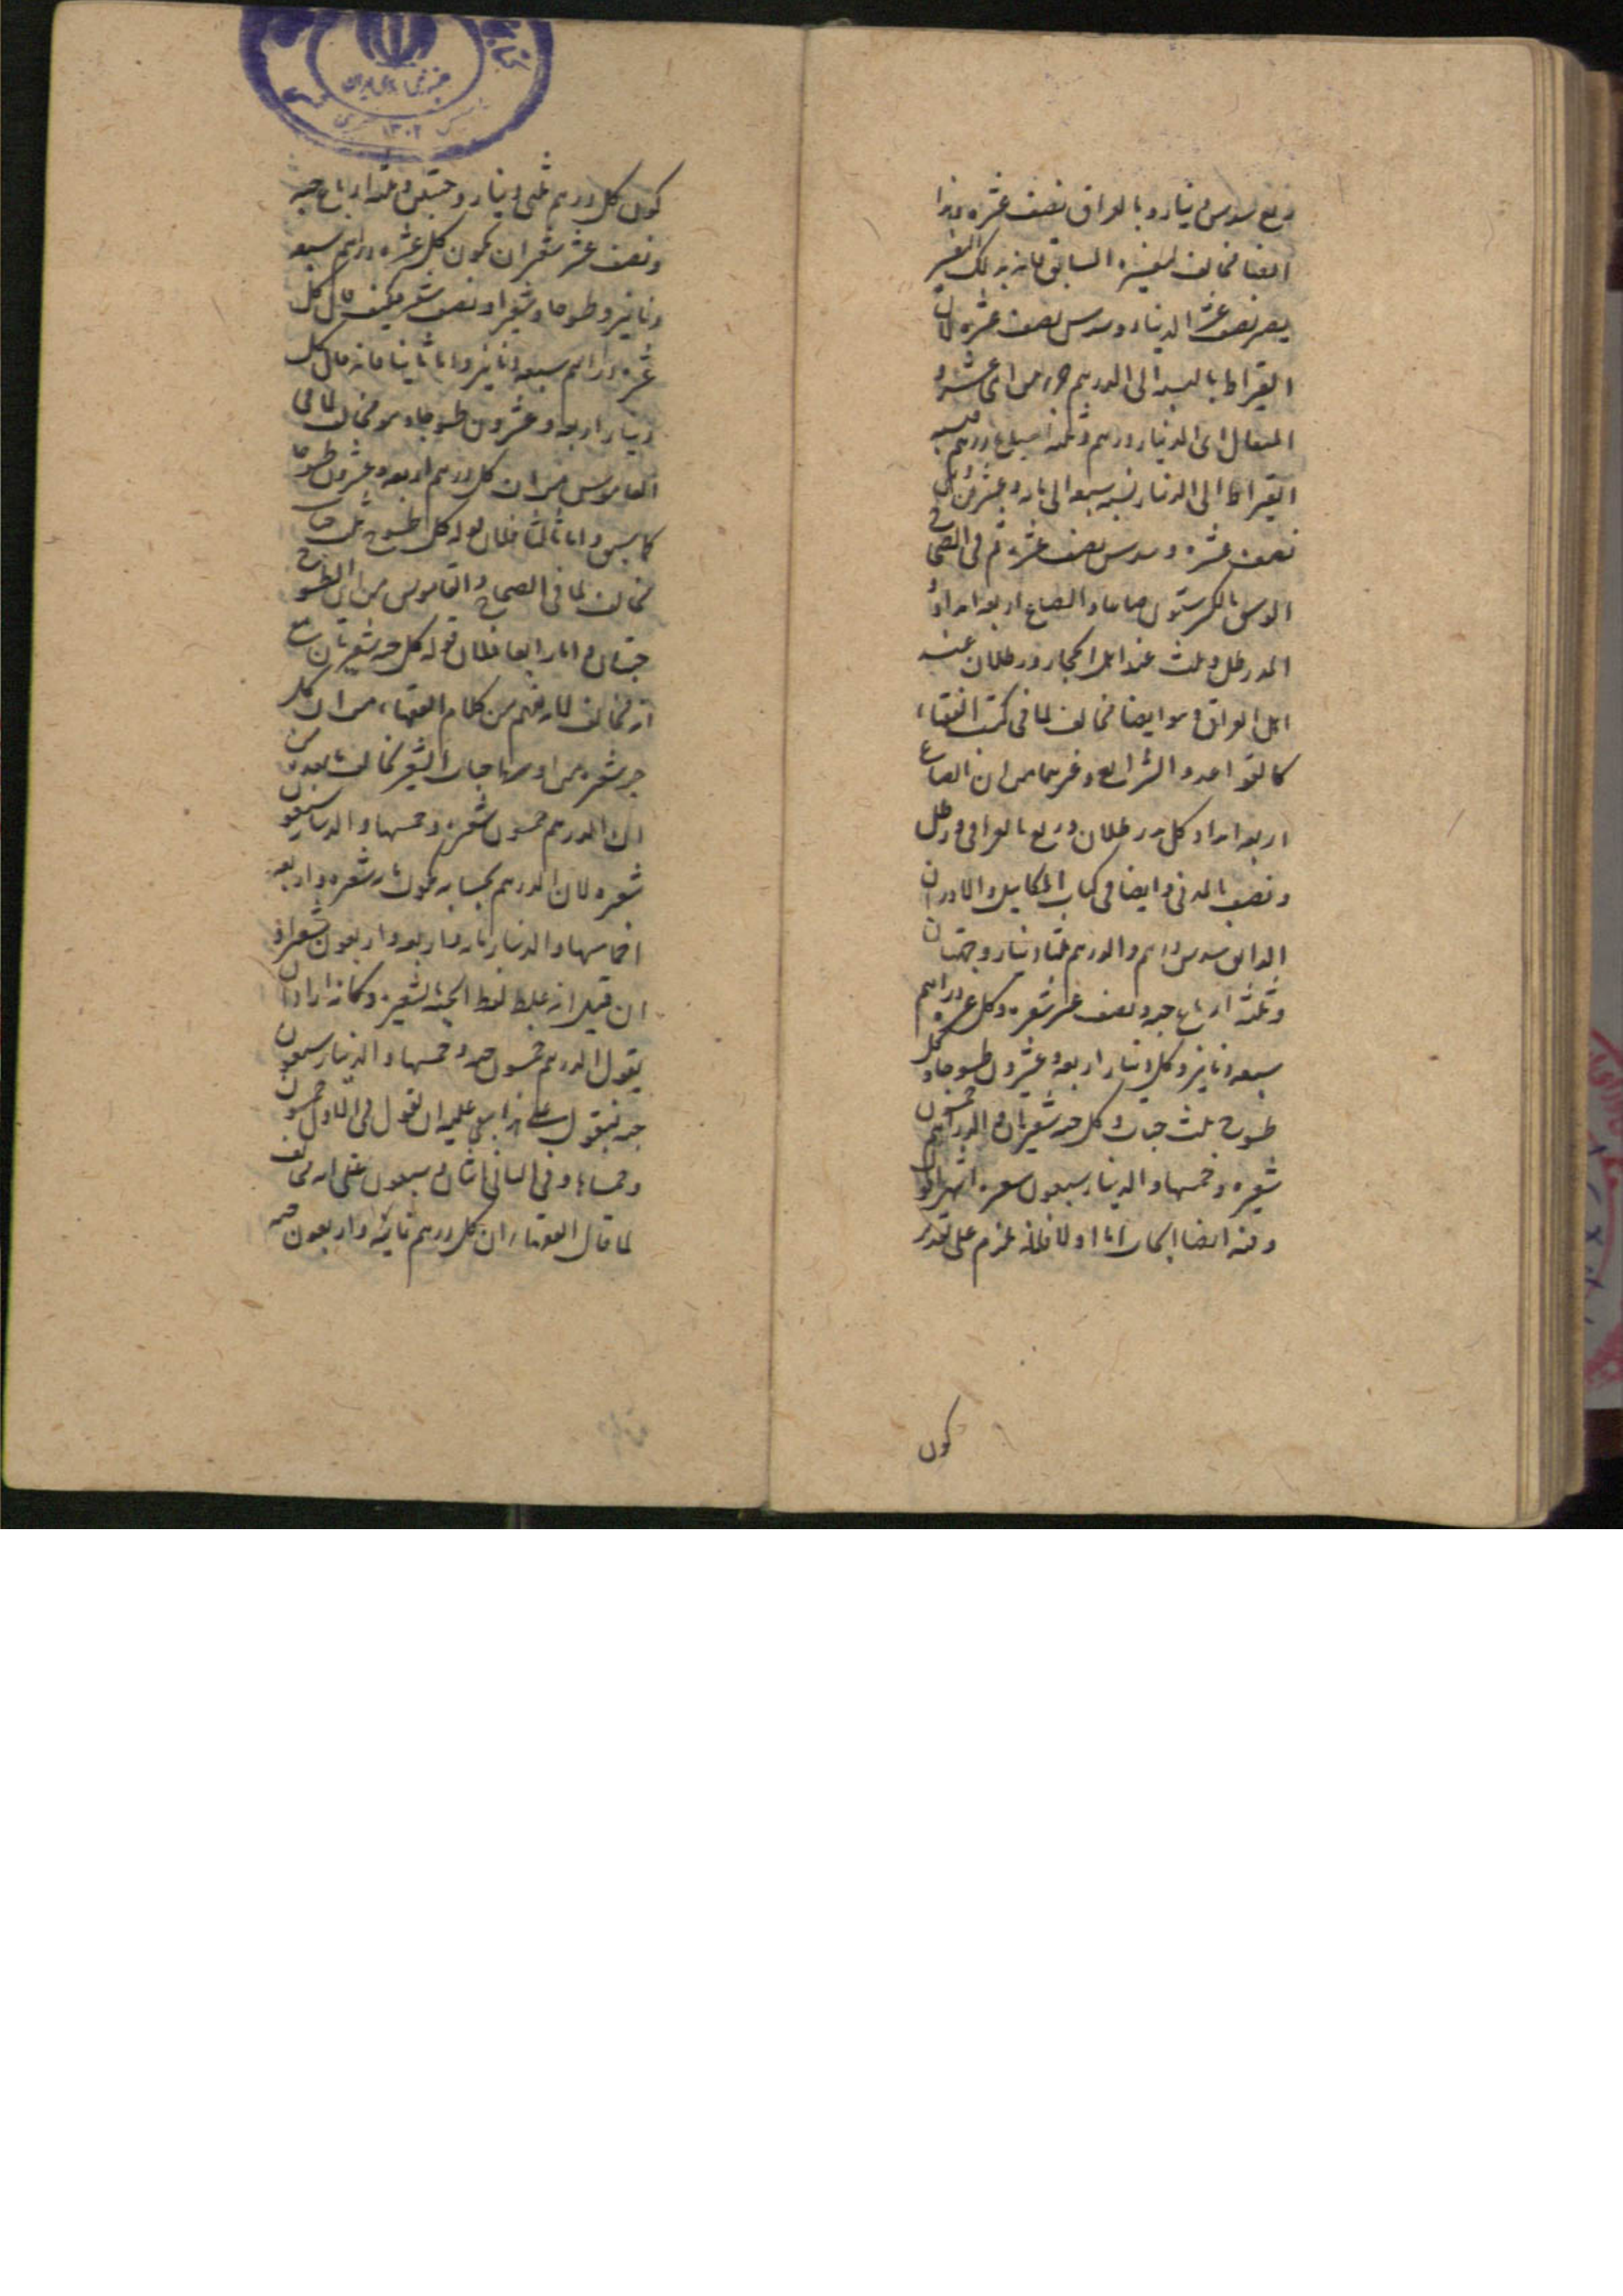 ربع سدس دينار وبالعراق نصف عشره وهذا
ايضا مخالف لتفسيره السابق فانه بذلك التفسير
يصير نصف عشر الدينار وسدس نصف عشره لان
القيراط بالنسبة الى الدرهم جزء من اثنى عشر و
المثقال اى الدينار درهم وثلثة اسباع درهم فنسبة
القيراط الى الدينار نسبة سبعة الى مائة وعشرين
نصف عشره وسدس نصف عشره ثم فى الصحاح
الوسق بالكسر ستون صاعا والصاع اربعة امداد و
المد رطل وثلث عند اهل الحجاز ورطلان عند
اهل العراق وهو ايضا مخالف لما فى كتب الفقهاء
كالقواعد والشرايع وغيرهما من ان الصاع
اربعة امداد كل مد رطلان وربع بالعراقى ورطل
ونصف بالمدنى وايضا فى كتاب المكاييل والاوزان
الدانق سدس درهم والدرهم ثلثا دينار وحبتان
وثلثة ارباع حبة ونصف عشر شعيره وكل عشره دراهم
سبعة دنانير وكل دينار اربعة وعشرون طسوجا وكل
طسوج ثلث حبات وكل حبه شعيرتان والدرهم خمسون
شعيره وخمسها والدينار سبعون شعيره انتهى
وفيه ايضا ابحاث اما اولا فلانه يلزم على تقدير
كون
كون كل درهم ثلثى دينار وحبتين وثلثة ارباع حبه
ونصف عشر شعير ان يكون كل عشره دراهم سبعة
دنانير وطسوجا وشعيرا ونصف شعير فكيف قال كل
عشره دراهم سبعة دنانير واما ثانيا فانه قال كل
دينار اربعة وعشرون طسوجا وهو مخالف لما فى
القاموس من ان كل درهم اربعة وعشرون طسوجا
كما سبق واما ثالثا فلان قوله كل طسوج ثلث حبات
مخالف لما فى الصحاح والقاموس من ان الطسوج
حبتان واما رابعا فلان قوله كل حبه شعيرتان مع
انه مخالف لما يفهم من كلام الفقهاء من ان كل
حبه شعيره من اوسط حبات الشعير مخالف لما بعده من
ان الدرهم خمسون شعيره وخمسها والدينار سبعون
شعيره لان الدرهم بحسابه يكون مائة شعيره واربعة
اخماسها والدينار مائة واربعة واربعون شعيرا فـ
ان قيل انه غلط لفظ الحبه بالشعيره وكانه اراد ان
يقول الدرهم خمسون حبه وخمسها والدينار سبعون
حبه فنقول على هذا ينبغى عليه ان يقول فى الاول خمسون
وخمساها وفى الثانى اثنان وسبعون على انه مخالف
لما قال الفقهاء ان كل درهم ثمانية واربعون حبه